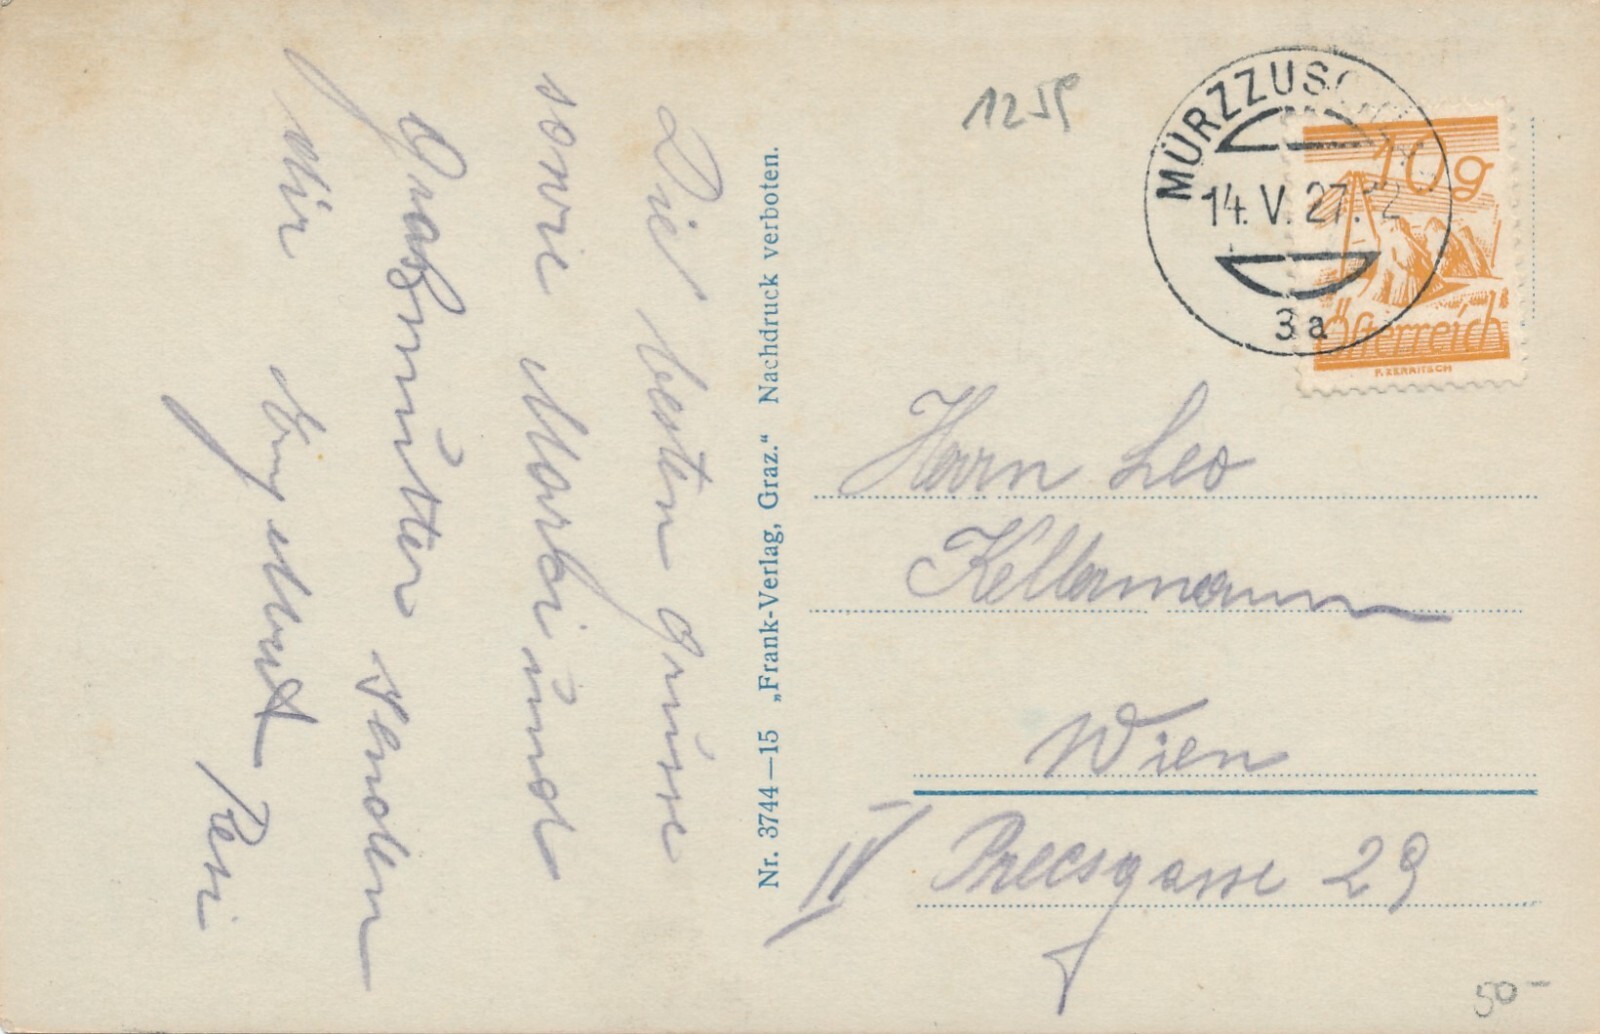 Die besten Grüsse
sowie Marbi und
Grossmutter senden
Dir
Resi
Nr. 3744—15 „Frank-Verlag, Graz.“ Nachdruck verboten.
1259
MÜRZZUSCHLAG
14.V.27.
3a
10g
Österreich
Herrn Leo
Kellermann
Wien
IV Preesgasse 29
50-